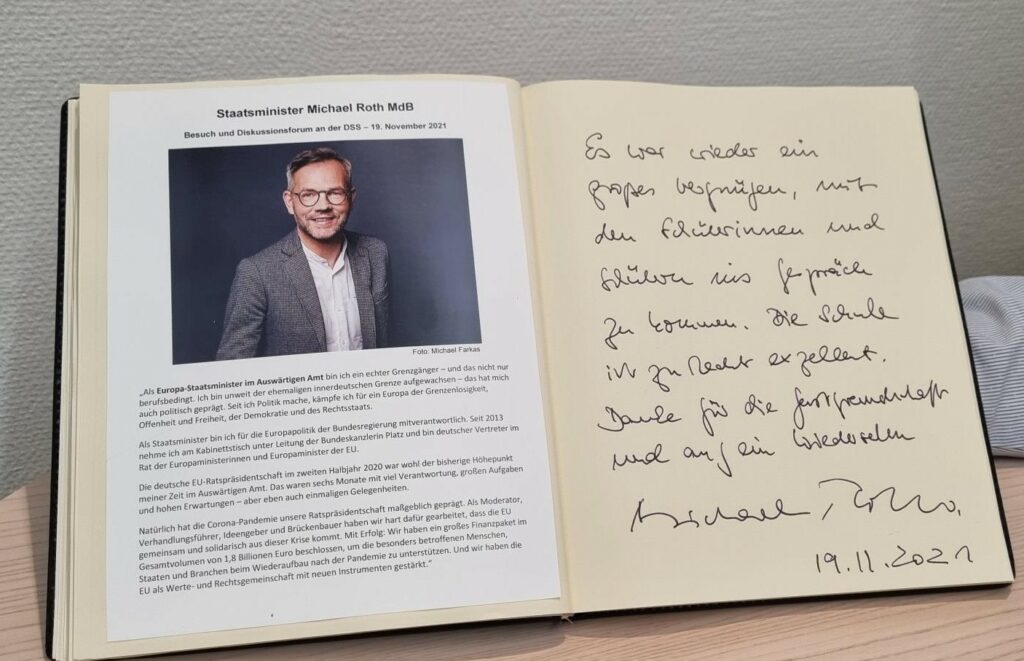 Staatsminister Michael Roth MdB
Besuch und Diskussionsforum an der DSS – 19. November 2021
Foto: Michael Farkas
„Als Europa-Staatsminister im Auswärtigen Amt bin ich ein echter Grenzgänger – und das nicht nur
berufsbedingt. Ich bin unweit der ehemaligen innerdeutschen Grenze aufgewachsen – das hat mich
auch politisch geprägt. Seit ich Politik mache, kämpfe ich für ein Europa der Grenzenlosigkeit,
Offenheit und Freiheit, der Demokratie und des Rechtsstaats.
Als Staatsminister bin ich für die Europapolitik der Bundesregierung mitverantwortlich. Seit 2013
nehme ich am Kabinettstisch unter Leitung der Bundeskanzlerin Platz und bin deutscher Vertreter im
Rat der Europaministerinnen und Europaminister der EU.
Die deutsche EU-Ratspräsidentschaft im zweiten Halbjahr 2020 war wohl der bisherige Höhepunkt
meiner Zeit im Auswärtigen Amt. Das waren sechs Monate mit viel Verantwortung, großen Aufgaben
und hohen Erwartungen – aber eben auch einmaligen Gelegenheiten.
Natürlich hat die Corona-Pandemie unsere Ratspräsidentschaft maßgeblich geprägt. Als Moderator,
Verhandlungsführer, Ideengeber und Brückenbauer haben wir hart dafür gearbeitet, dass die EU
gemeinsam und solidarisch aus dieser Krise kommt. Mit Erfolg: Wir haben ein großes Finanzpaket im
Gesamtvolumen von 1,8 Billionen Euro beschlossen, um die besonders betroffenen Menschen,
Staaten und Branchen beim Wiederaufbau nach der Pandemie zu unterstützen. Und wir haben die
EU als Werte- und Rechtsgemeinschaft mit neuen Instrumenten gestärkt.“
Es war wieder ein
großes Vergnügen, mit
den Schülerinnen und
Schülern ins Gespräch
zu kommen. Die Schule
ist zu Recht exzellent.
Danke für die Gastfreundschaft
und auf ein Wiedersehen
Michael Roth
19.11.2021